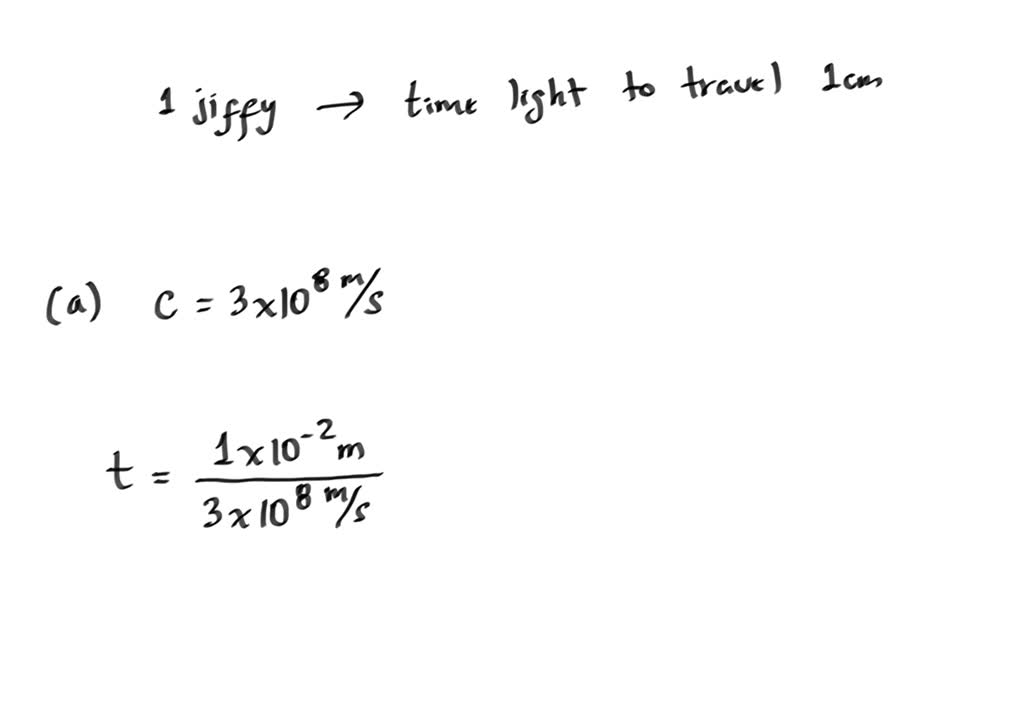 1 jiffy → time light to travel 1cm
(a) c = 3×10⁸ m/s
t = 1×10⁻² m / 3×10⁸ m/s